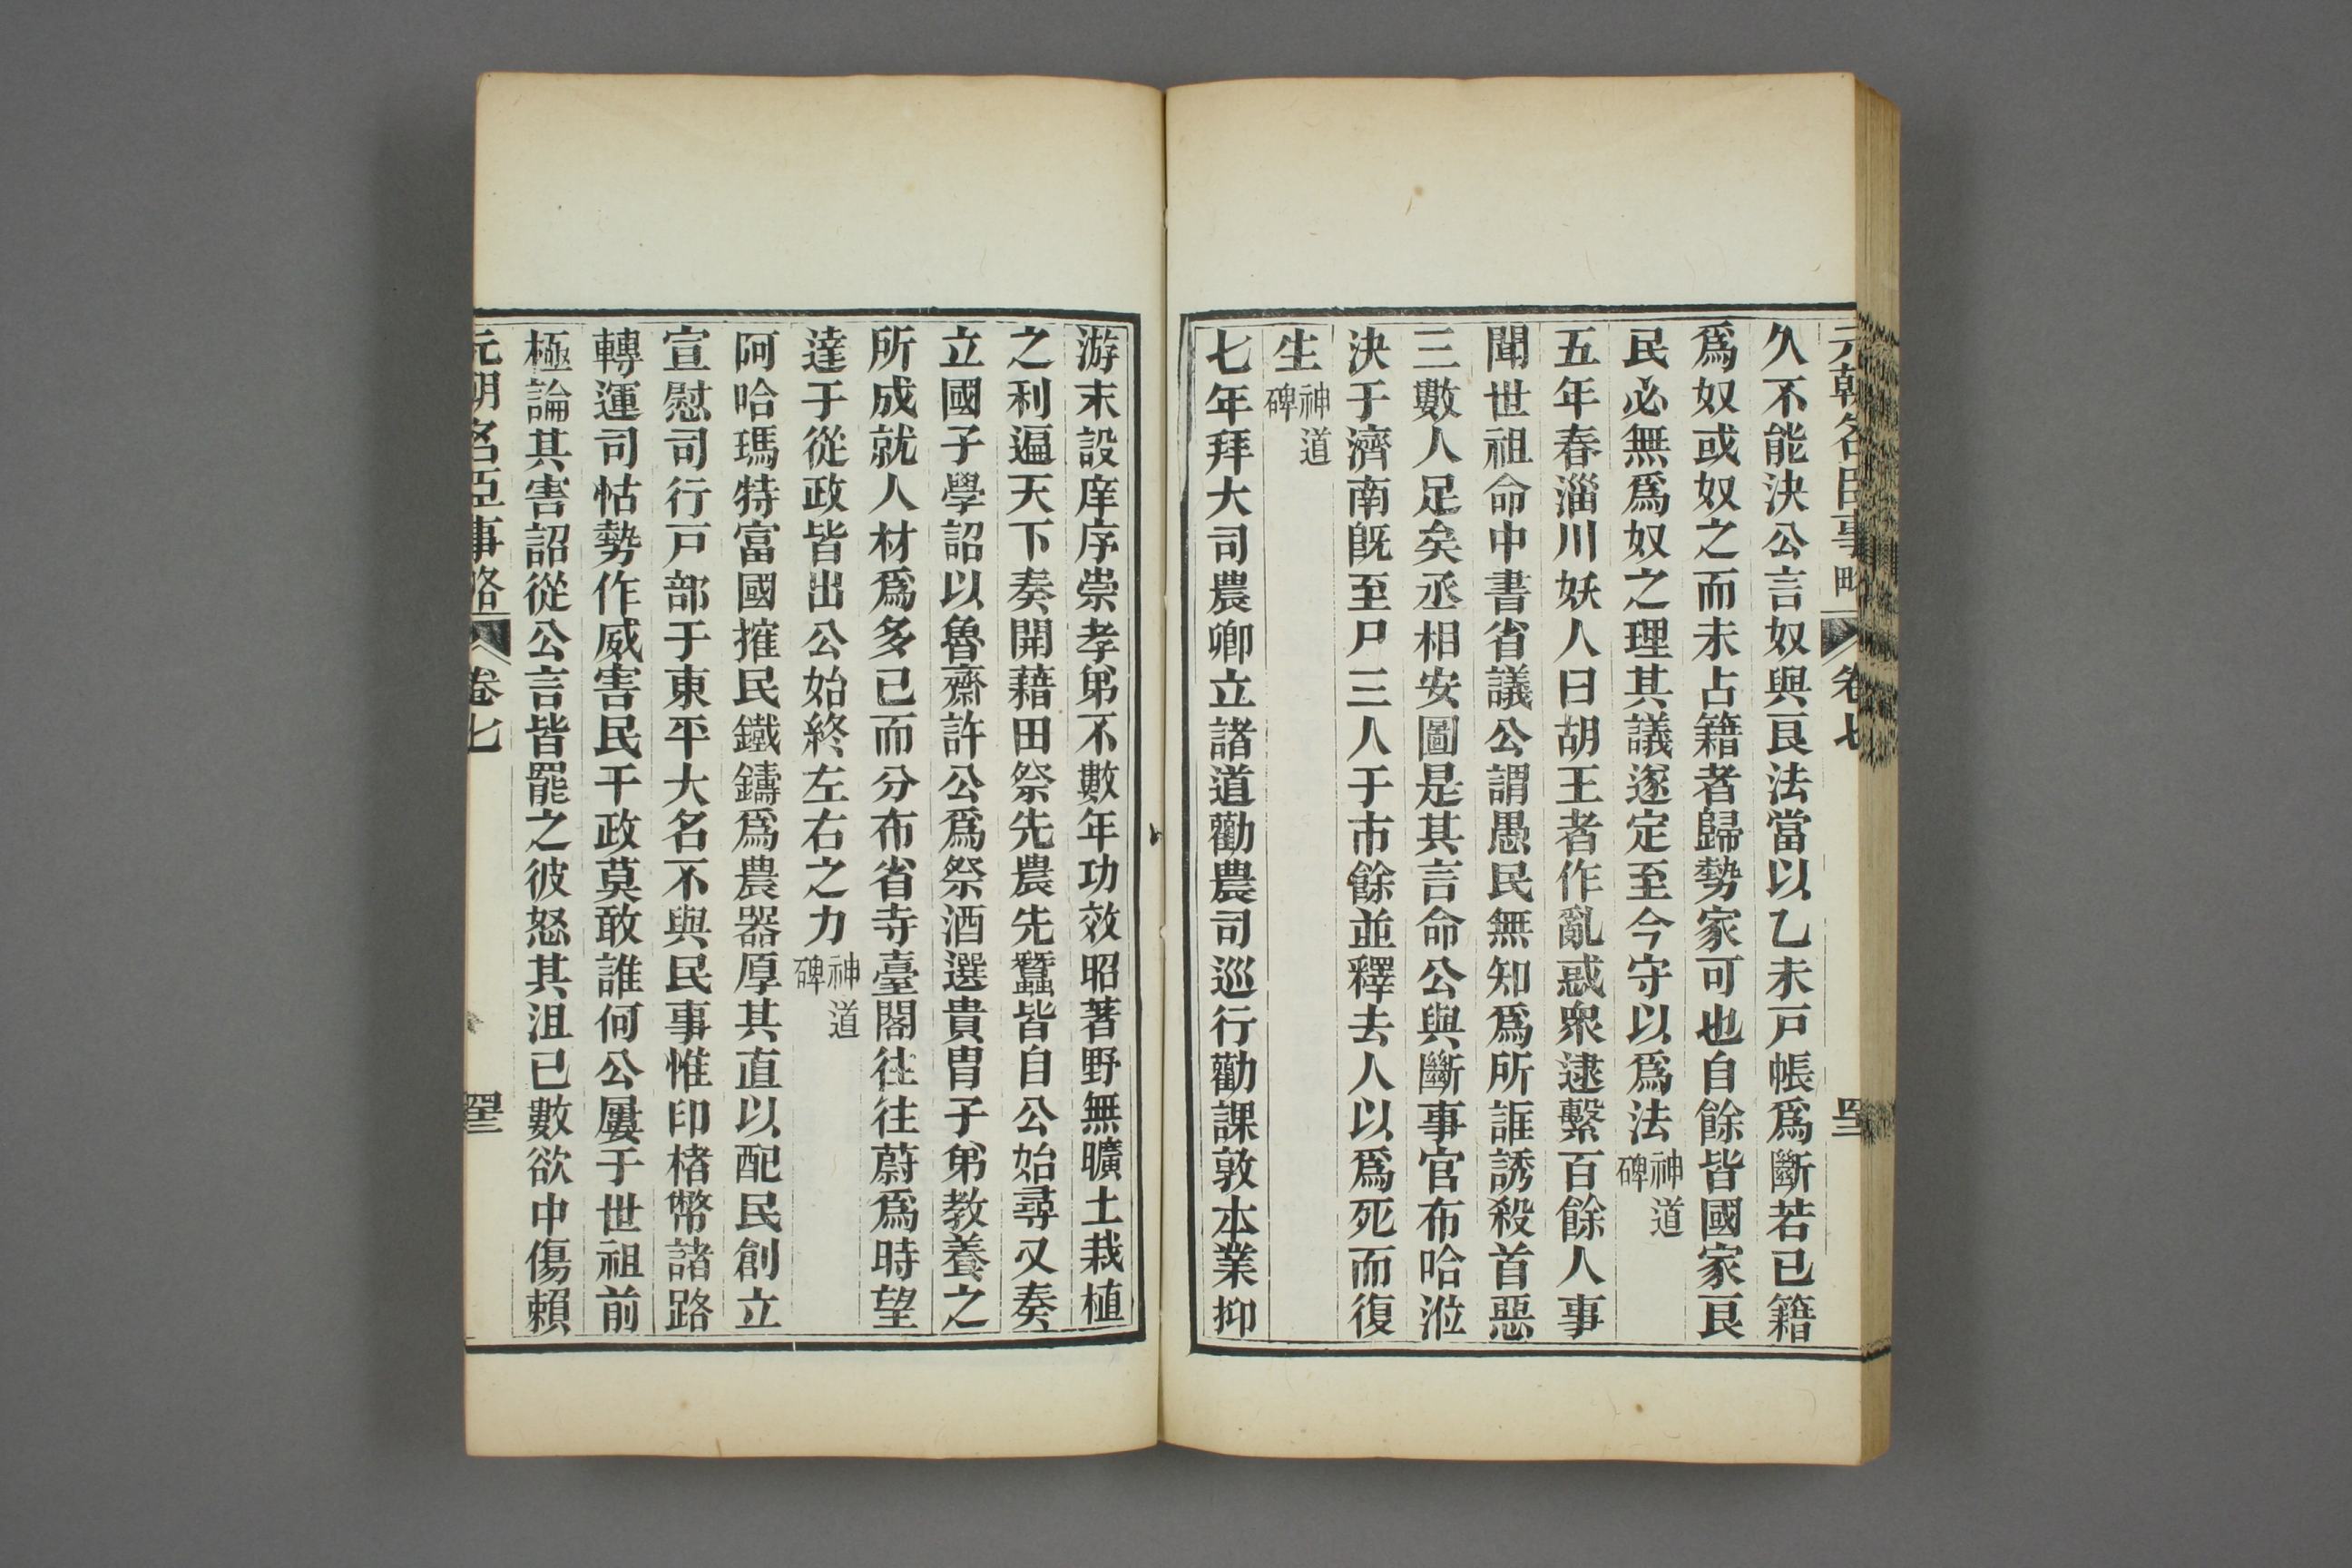 元朝名臣事略 卷七
久不能決公言奴與良法當以乙未戸帳爲斷若已籍
爲奴或奴之而未占籍者歸勢家可也自餘皆國家良
民必無爲奴之理其議遂定至今守以爲法神道碑
五年春淄川妖人曰胡王者作亂惑衆逮繫百餘人事
聞世祖命中書省議公謂愚民無知爲所誑誘殺首惡
三數人足矣丞相安圖是其言命公與斷事官布哈涖
決于濟南旣至尸三人于市餘並釋去人以爲死而復
生神道碑
七年拜大司農卿立諸道勸農司巡行勸課敦本業抑
游末設庠序崇孝弟不數年功效昭著野無曠土栽植
之利遍天下奏開藉田祭先農先蠶皆自公始尋又奏
立國子學詔以魯齋許公爲祭酒選貴胄子弟教養之
所成就人材爲多已而分布省寺臺閣往往蔚爲時望
達于從政皆出公始終左右之力神道碑
阿哈瑪特富國搉民鐵鑄爲農器厚其直以配民創立
宣慰司行戸部于東平大名不與民事惟印楮幣諸路
轉運司怙勢作威害民干政莫敢誰何公屢于世祖前
極論其害詔從公言皆罷之彼怒其沮已數欲中傷賴
元朝名臣事略 卷七